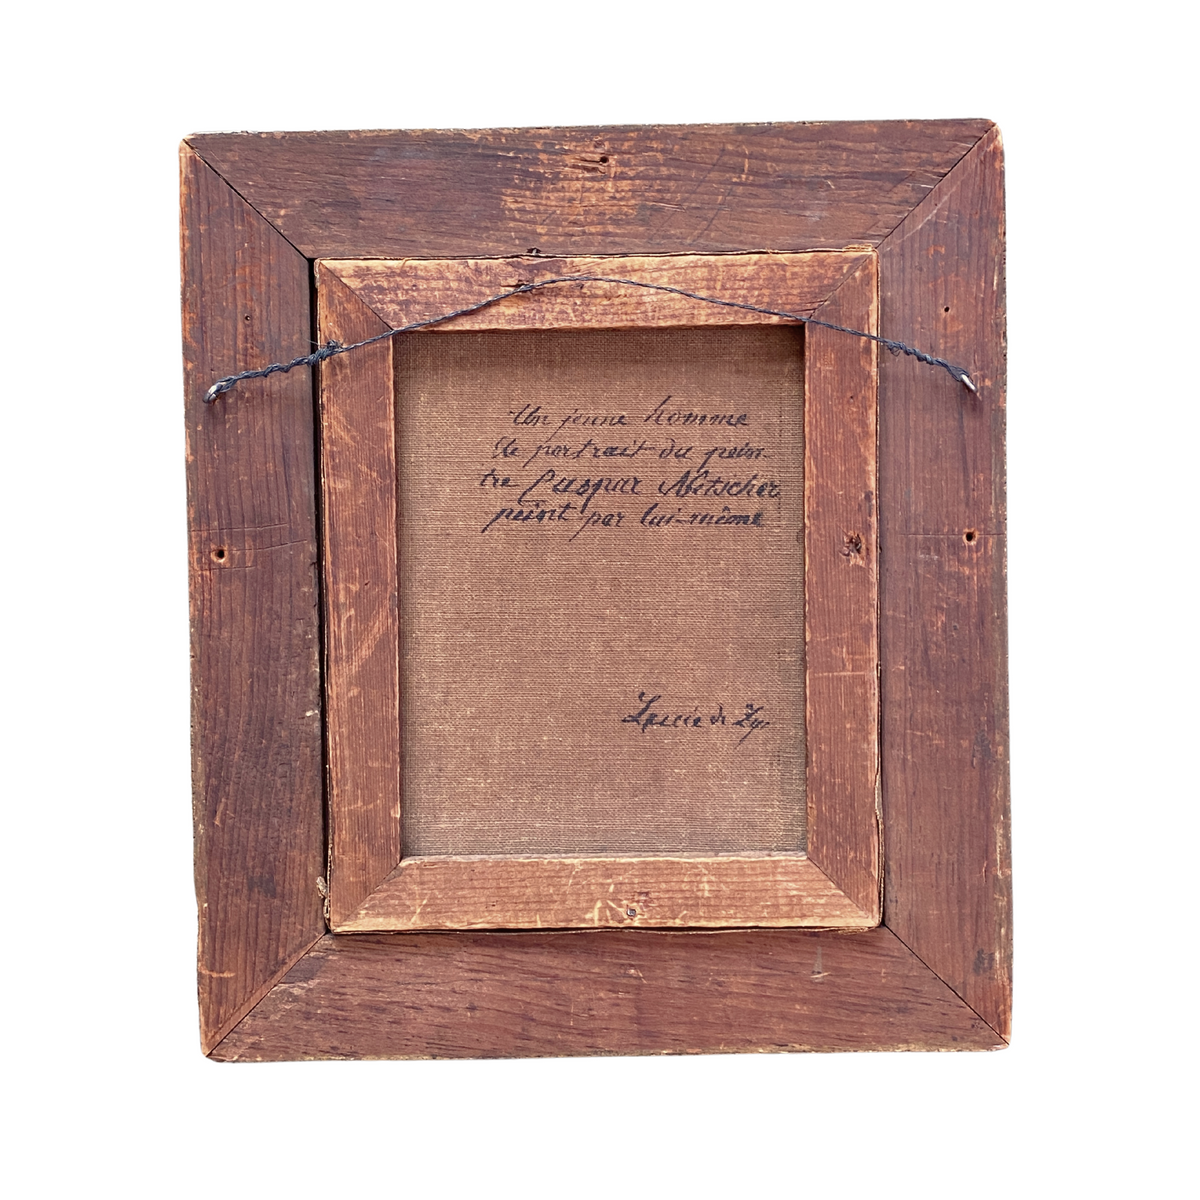 Un jeune homme
le portrait du pein
tre Caspar Netscher
peint par lui-même
de